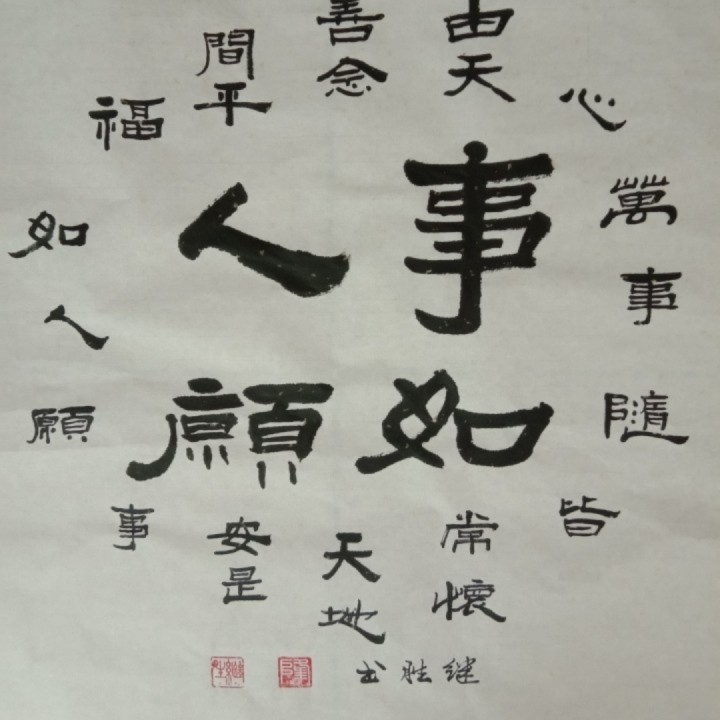 事如
人願
萬事隨
心皆
由天常懷
善念天地
間平安是
福事
如人願
继胜书